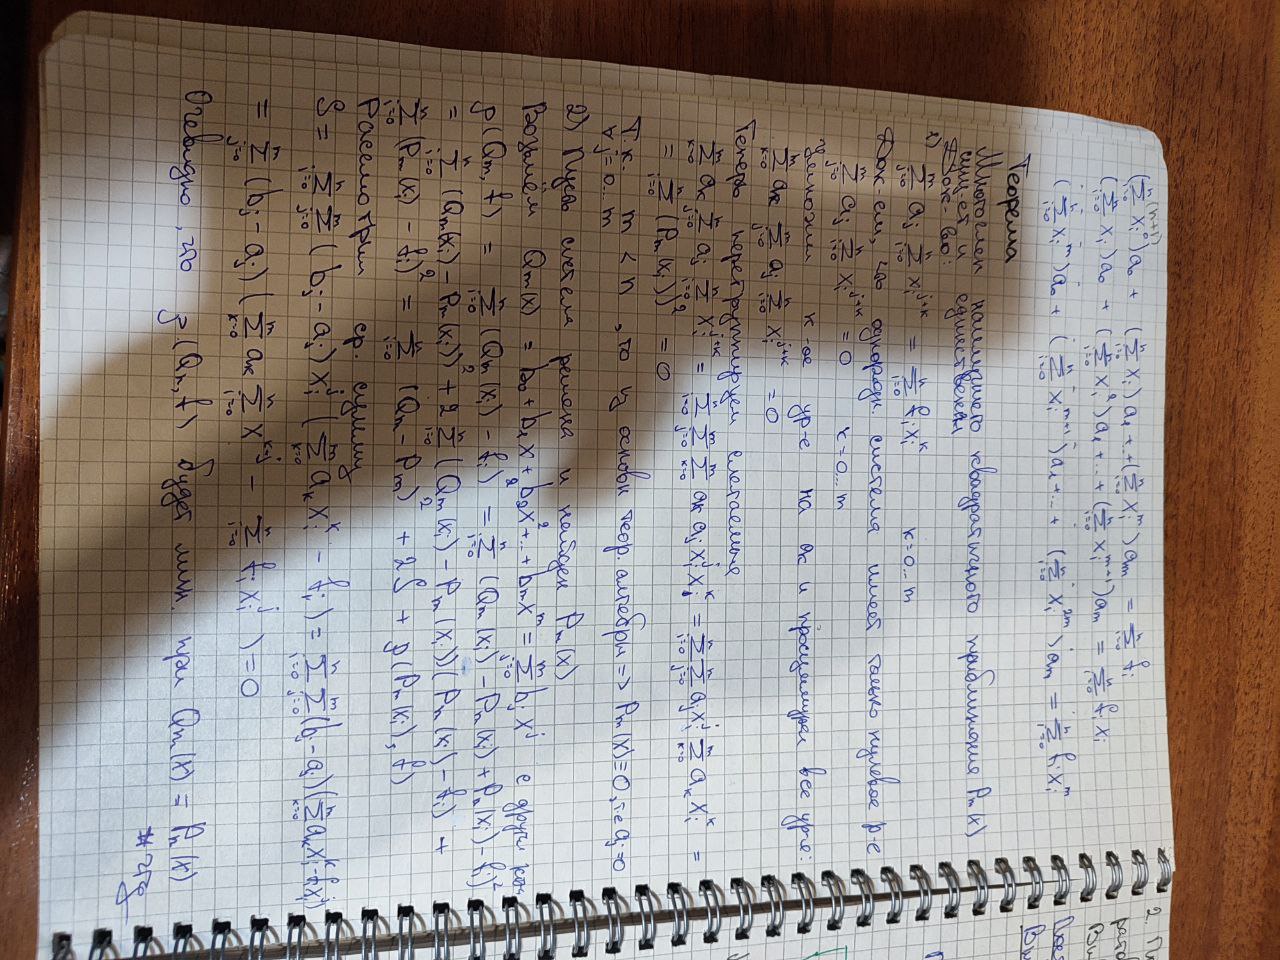 (n+1)
(∑_{i=0}^{n} x_i^0)a_0 + (∑_{i=0}^{n} x_i)a_1 + … + (∑_{i=0}^{n} x_i^m)a_m = ∑_{i=0}^{n} f_i
(∑_{i=0}^{n} x_i)a_0 + (∑_{i=0}^{n} x_i^2)a_1 + … + (∑_{i=0}^{n} x_i^{m+1})a_m = ∑_{i=0}^{n} f_i x_i
(∑_{i=0}^{n} x_i^m)a_0 + (∑_{i=0}^{n} x_i^{m+1})a_1 + … + (∑_{i=0}^{n} x_i^{2m})a_m = ∑_{i=0}^{n} f_i x_i^m
Теорема
Многочлен наилучшего квадратичного приближения P_m(x)
сущ-ет и единственен
Док-во:
1) ∑_{j=0}^{m} a_j ∑_{i=0}^{n} x_i^{j+k} = ∑_{i=0}^{n} f_i x_i^k k=0…m
Док-ем, что однородн. система имеет только нулевое р-е
∑_{j=0}^{m} a_j ∑_{i=0}^{n} x_i^{j+k} = 0 k=0…m
Умножим k-ое ур-е на a_k и просуммируем все ур-я:
∑_{k=0}^{m} a_k ∑_{j=0}^{m} a_j ∑_{i=0}^{n} x_i^{j+k} = 0
Теперь перегруппируем слагаемые
∑_{k=0}^{m} a_k ∑_{j=0}^{m} a_j ∑_{i=0}^{n} x_i^{j+k} = ∑_{i=0}^{n} ∑_{j=0}^{m} ∑_{k=0}^{m} a_k a_j x_i^j x_i^k = ∑_{i=0}^{n} ∑_{j=0}^{n} a_j x_i^j ∑_{k=0}^{m} a_k x_i^k =
= ∑_{i=0}^{n} (P_m(x_i))^2 = 0
Т.к. m < n, то из основн теор. алгебры => P_m(x)≡0, т.е a_j=0
∀ j=0…m
2) Пусть система решена и найден P_m(x)
Возьмём Q_m(x) = b_0 + b_1 x + b_2 x^2 + … + b_m x^m = ∑_{j=0}^{m} b_j x^j с други
g(Q_m, f) = ∑_{i=0}^{n} (Q_m(x_i) - f_i)^2 = ∑_{i=0}^{n} (Q_m(x_i) - P_n(x_i) + P_n(x_i) - f_i)^2
= ∑_{i=0}^{n} (Q_m(x_i) - P_m(x_i))^2 + 2 ∑_{i=0}^{n} (Q_m(x_i) - P_m(x_i))(P_m(x_i) - f_i) +
∑_{i=0}^{n} (P_m(x_i) - f_i)^2 = ∑_{i=0}^{n} (Q_m - P_m)^2 + 2S + g(P_m(x_i), f)
Рассмотрим ср. сумму
S = ∑_{i=0}^{n} ∑_{j=0}^{m} (b_j - a_j) x_i^j (∑_{k=0}^{m} a_k x_i^k - f_i) = ∑_{i=0}^{n} ∑_{j=0}^{m} (b_j - a_j)(∑_{k=0}^{m} a_k x_i^k - f_i x_i^j)
= ∑_{j=0}^{m} (b_j - a_j)(∑_{k=0}^{m} a_k ∑_{i=0}^{n} x^{k+j} - ∑_{i=0}^{n} f_i x_i^j) = 0
Очевидно, что g(Q_n, f) будет мин. при Q_m(x) = P_n(x)
чтд
2.